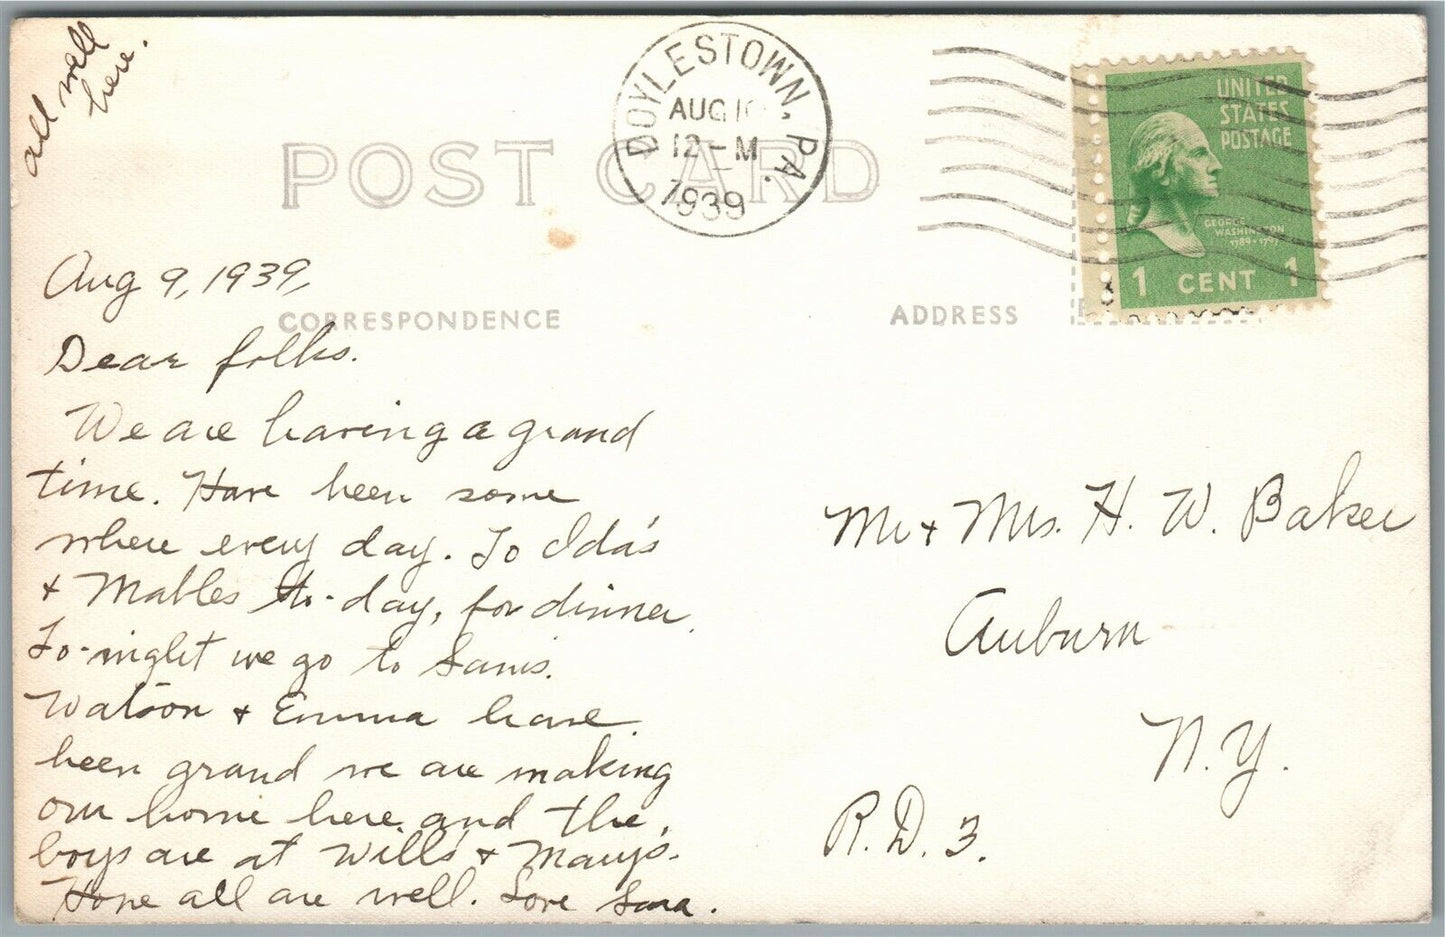 all well
here.
POST CARD
DOYLESTOWN, PA.
AUG 10
12-M
1939
UNITED
STATES
POSTAGE
GEORGE
WASHINGTON
1789-1797
1 CENT 1
CORRESPONDENCE
ADDRESS
Aug 9, 1939,
Dear folks.
We are having a grand
time. Have been some
where every day. To Ida's
+ Mables to-day, for dinner.
To-night we go to Sam's.
Watson + Emma have
been grand we are making
our home here and the
boys are at Will's + Mary's.
Hope all are well. Love Sara.
Mr + Mrs. H. W. Baker
Auburn
N.Y.
R.D. 3.